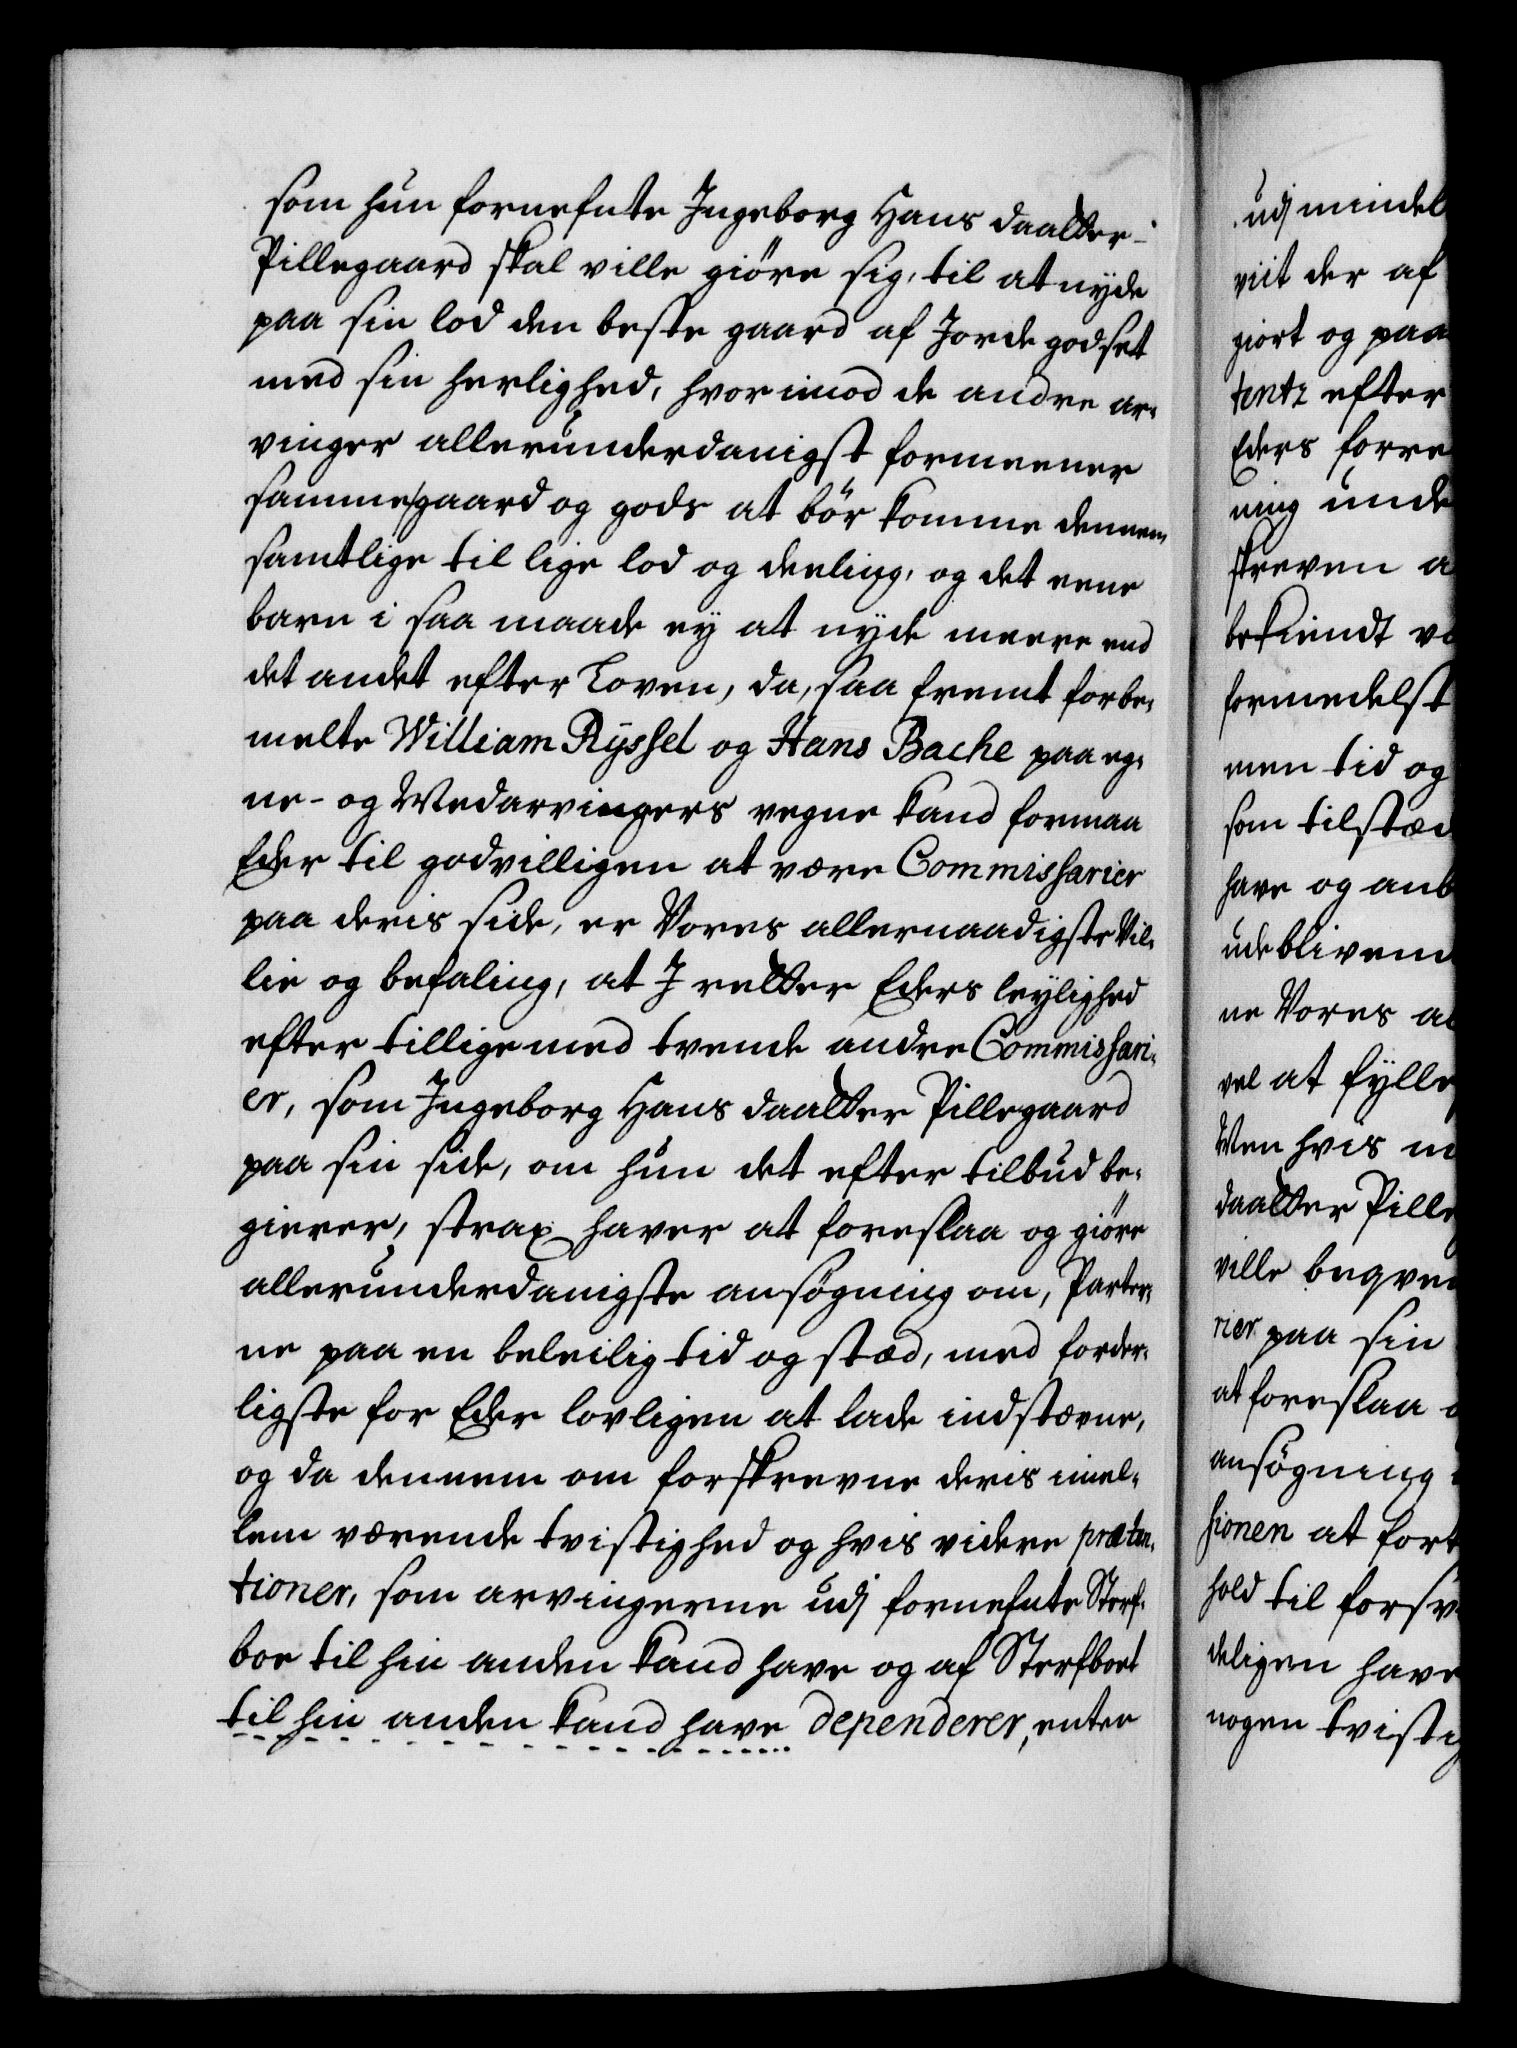 som hun fornefnte Ingeborg Hans daatter-
Pillegaard skal ville giöre sig, til at nyde
paa sin lod den beste gaard af Jorde godset
med sin herlighed, hvorimod de andre ar-
vinger allerunderdanigst formeener
samme gaard og gods at bör komme dennem
samtlige til lige lod og deeling, og det eene
barn i saa maade ey at nyde meere end
det andet efter Loven, da, saa fremt forbe-
melte William Ryssel og Hans Bache paa eg-
ne- og Medarvingers vegne kand formaa
Eder til godvilligen at være Commissarier
paa deris side, er Vores allernaadigste Vil-
lie og befaling, at I retter Eders leylighed
efter tilligemed tvende andre Commissari-
er, som Ingeborg Hans daatter Pillegaard
paa sin side, om hun det efter tilbud be-
gierer, strax haver at foreslaa og giöre
allerunderdanigste ansögning om, Parter-
ne paa en beleilig tid og stæd, med forder-
ligste for Eder lovligen at lade indstævne,
og da dennem om forskrevne deris imel-
lem værende tvistighed og hvis videre præten-
tioner, som arvingerne udj fornefnte Sterf-
boe til hin anden kand have og af Sterfboet
til hin anden kand have dependerer, enten
udj mindel
viit der af
giort og paa
tentz efter
Eders forre
ning unde
skreven a
bekiendt v
formedelst
men tid og
som tilstæd
have og anb
udebliven
ne Vores al
vel at fylle
Men hvis m
daatter Pille
ville beqve
rier paa sin
at foreslaa
ansögning
sionen at fort
hold til forsv
deligen have
nogen tvistig